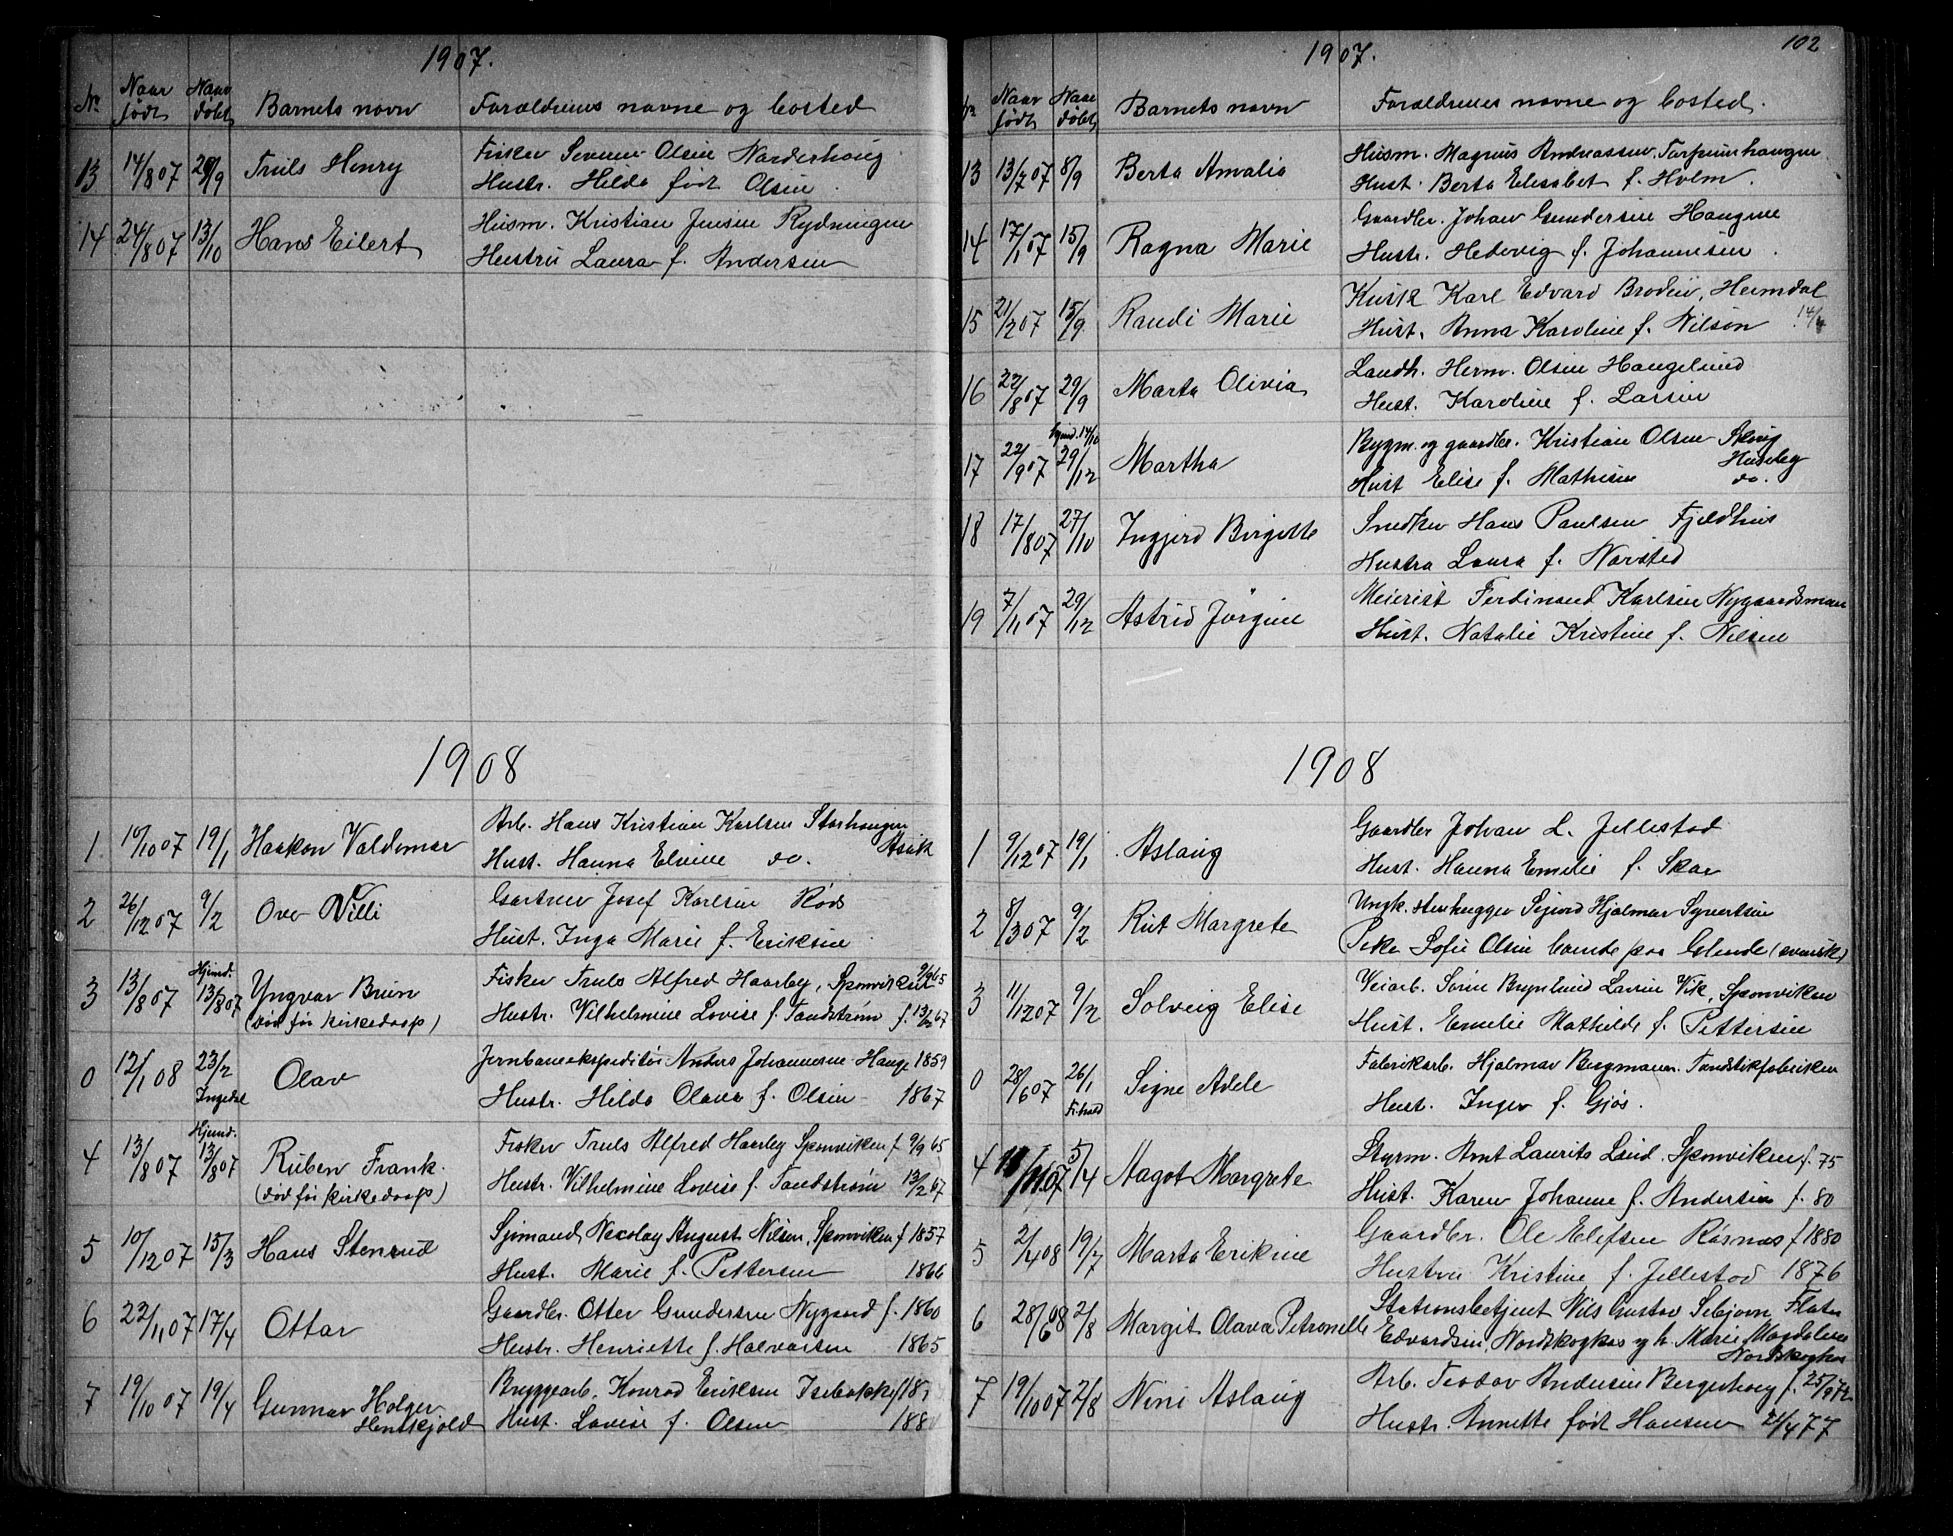 1907.
Nr Naar født Naar døbt Barnets navn Forældrenes navne og bosted
13 14/8 07 29/9 Truls Henry Fisker Severin Olsen Norderhaug
Hustr. Hilda født Olsen.
14 24/8 07 13/10 Hans Eilert Husm. Kristian Jensen Rydningen
Hustru Laura f. Andersen
1908
1 10/10 07 19/1 Haakon Valdemar Arb. Hans Kristian Karlsen Storhaugen
Asak
Hust. Hanna Elvine do.
2 26/12 07 9/2 Ove Villi Gartner Josef Karlsen Rød
Hust. Inga Marie f. Eriksen
3 13/8 07 Hjemd. 13/8 07 Yngvar Brun Fisker Truls Alfred Haarby, Sponviken 9/9 65
(død før kirkedaap) Hustr. Vilhelmine Lovise f. Tandstrøm f. 13/2 67
0 12/1 08 23/2 Ingedal Olav Jernbaneekspeditør Anders Johannesen Hauge 1859
Hustr. Hilda Olava f. Olsen 1867
4 13/8 07 Hjemd. 13/8 07 Ruben Frank. Fisker Truls Alfred Haarby Sponviken f 9/9 65
(død før kirkedaap) Hustr. Vilhelmine Lovise f. Tandstrøm 13/2 67
5 10/12 07 15/3 Hans Stenrud Sjømand Nicolay August Nilsen, Sponviken f 1857
Hust. Marie f. Pettersen 1866
6 22/11 07 17/4 Ottar Gaardbr. Otter Gundersen Nygaard f. 1860
Hustr. Henriette f. Halvorsen 1865
7 19/10 07 19/4 Gunnar Holger Bryggearb. Konrad Eriksen Isebakke f 18
Hentskjold Hust. Lovise f. Olsen 188
102
1907.
Nr Naar født Naar døbt Barnets navn Forældrenes navne og bosted.
13 13/7 07 8/9 Berta Amalia Husm. Magnus Andreassen, Torpumhaugen
Hust. Berta Elisabet f. Holm.
14 17/1 07 15/9 Ragna Marie Gaardbr. Johan Gundersen Haugene
Hustr. Hedevig f. Johannesen.
15 21/2 07 15/9 Randi Marie Kusk Karl Edvard Brodin, Heimdal
Hust. Anna Karoline f. Nilson 14/4
16 22/8 07 29/9 Marta Olivia Landh. Herm. Olsen Haugelund
Hust. Karoline f. Larsen
17 22/9 07 hjemd. 14/10 29/12 Martha Bygm. og gaardbr. Kristian Olsen Skrig
Huseby
Hust Elise f. Mathisen do.
18 17/8 07 27/10 Ingjerd Birgitte Snedker Hans Paulsen Fjeldhus
Hustru Laura f. Narsted
19 7/11 07 29/12 Astrid Jørgine Meierist Ferdinand Karlsen Nygaardsmoen
Hust. Natalie Kristine f. Nilsen
1908
1 9/12 07 19/1 Aslaug Gaardbr Johan L. Jellestad
Hust. Hanna Emelie f. Skar
2 8/3 07 9/2 Rut Margrete Ungk. stenhugger Sigurd Hjalmar Syvertsen
Pike Sofie Olsen boende paa Glende (svensk)
3 11/12 07 9/2 Solveig Elise Veiarb. Søren Brynlund Larsen Vik, Sponviken
Hust. Emelie Mathilde f. Pettersen
0 28/6 07 26/1 Fr.hald Signe Adele Fabrikarb. Hjalmar Bergmann. Tandstikfabriken
Hust. Inger f. Gjøs.
4 11/11 07 5/4 Aagot Margrete Styrm. Arnt Laurits Lund. Sponviken f. 75
Hust. Karen Johanne f. Andersen f. 80
5 2/4 08 19/7 Marta Erikine Gaardbr. Ole Elefsen Røsnæs f 1880
Hustru Kristine f. Jellestad 1876
6 28/6 08 2/8 Margit Olava Petronelle Stationsbetjent Nils Gustav Sebjørn Flater
Edvardsen, Nordskogkas og h. Marie Magdalene
Nordskogkas
7 19/10 07 2/8 Nini Aslaug Arb. Teodor Andersen Bergerhoug f. 25/9 72
Hustr. Annette født Hansen 24/4 77